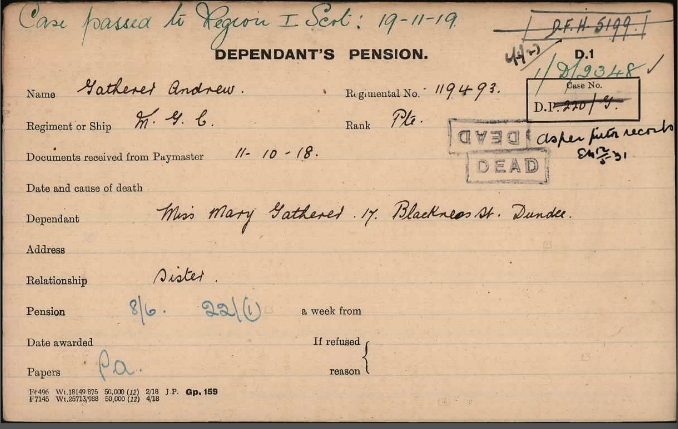 Case passed to Region I Scot: 19-11-19.
D.F.H 5199.
DEPENDANT'S PENSION.
D.1
1/D/2348 ✓
Name Gatherer Andrew. Regimental No. 119493.
Case No.
D.P. 220/G.
Regiment or Ship M. G. C. Rank Pte.
DEAD
DEAD
as per juto records
Documents received from Paymaster 11-10-18.
Date and cause of death
Dependant Miss Mary Gatherer. 17. Blackness St. Dundee.
Address
Relationship Sister.
Pension 8/6. 22/(1) a week from
Date awarded If refused
Papers Pa. reason
F6496 Wt.18149/875 50,000 (12) 2/18 J.P. Gp. 159
F7145 Wt.25713/988 50,000 (12) 4/18